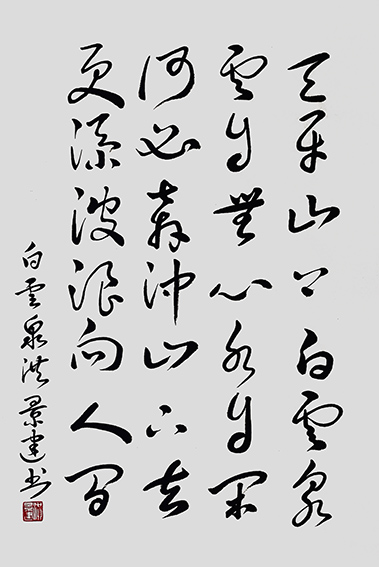 天平山上白雲泉
雲自無心水自閑
何必奔沖山下去
更添波浪向人間
白雲泉洪景建書